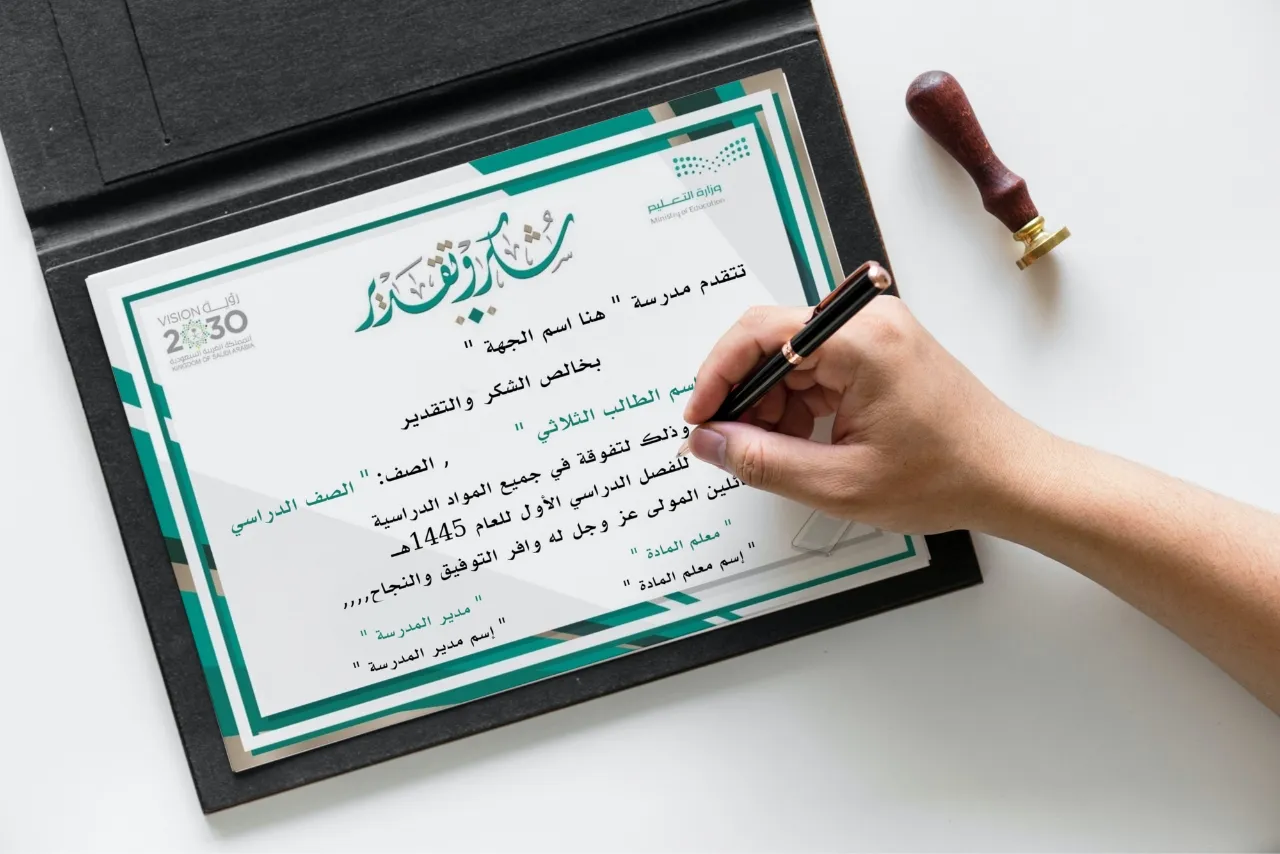 وزارة التعليم
Ministry of Education
شكر وتقدير
رؤية VISION
2030
المملكة العربية السعودية
KINGDOM OF SAUDI ARABIA
تتقدم مدرسة " هنا اسم الجهة "
بخالص الشكر والتقدير
اسم الطالب الثلاثي " , الصف: " الصف الدراسي
وذلك لتفوقة في جميع المواد الدراسية
للفصل الدراسي الأول للعام 1445هـ
المولى عز وجل له وافر التوفيق والنجاح,,,,
" معلم المادة "
" إسم معلم المادة "
" مدير المدرسة "
" إسم مدير المدرسة "